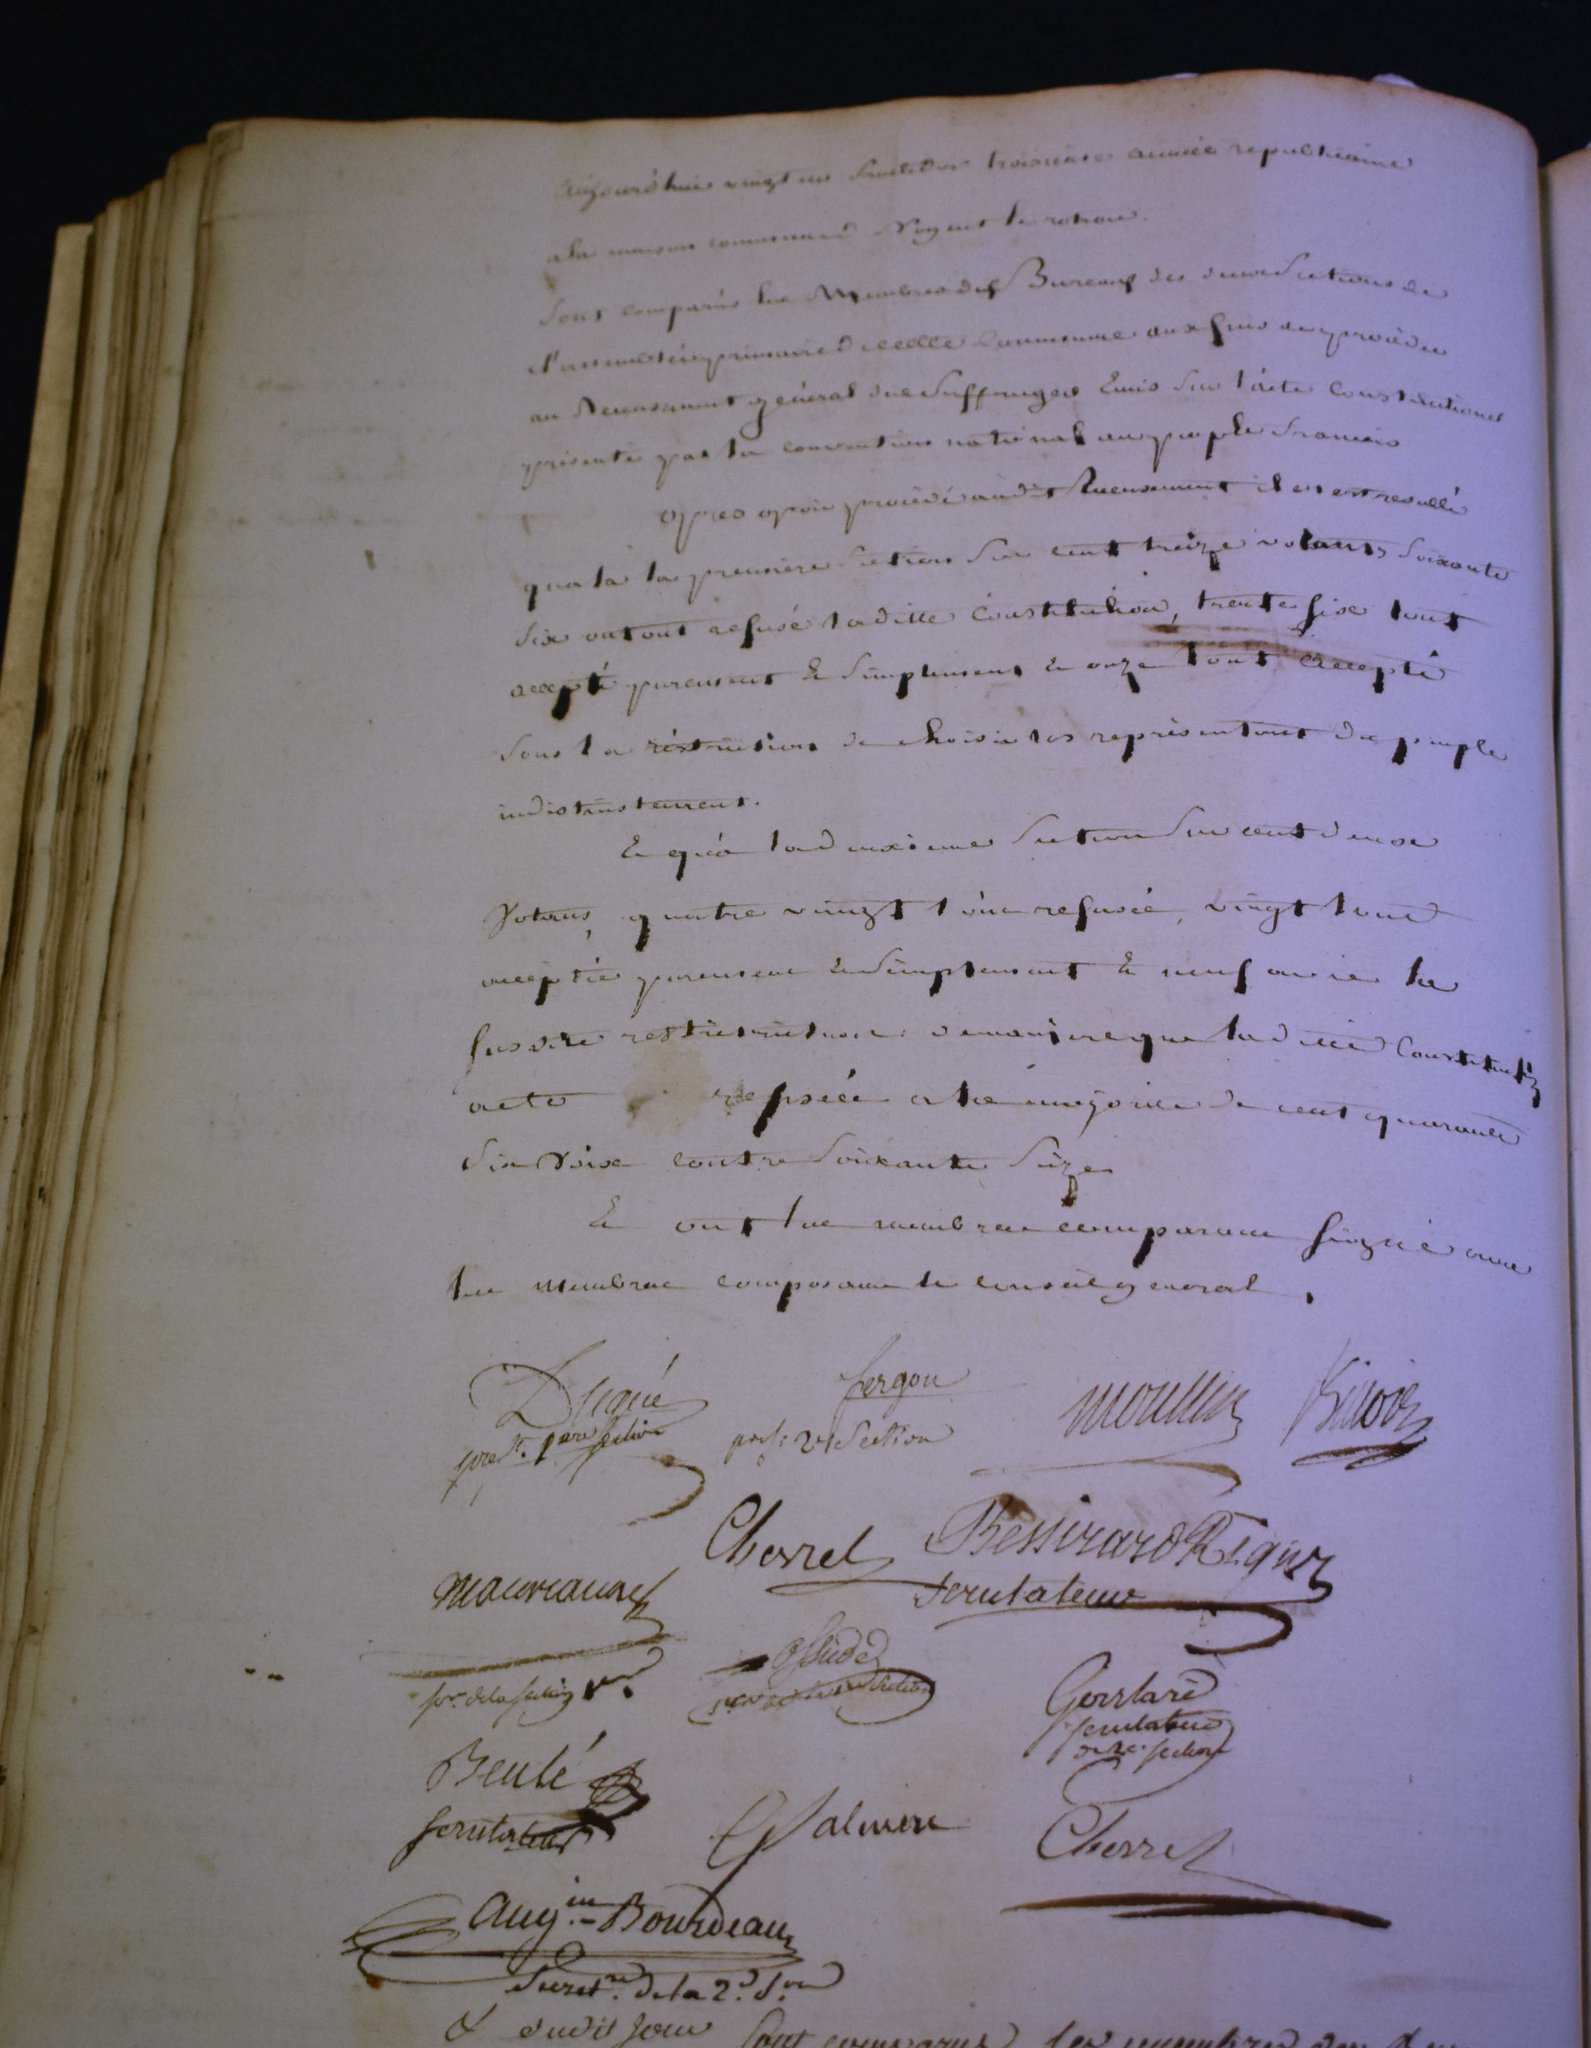 aujourd'huis vingt un fructidor troisieme année republicaine
a la maison commune de Nogent le rotrou.
Sont comparus les Membres des Bureaux des deux Sections de
l'assemblée primaire de cette Commune aux fins de procéder
au Recensement général des suffrages Emis sur l'acte Constitutionel
présenté par la convention national au peuple francais
apres avoir procédé audit Recensement il en est resulté
qu'a la premiere Section sur cent treize votants soixante
six ont refusé laditte Constitution, trente six l'ont
accepté purement & simplement & onze l'ont accepté
sous la réstriction de choisir les représentant du peuple
indistinctement.
& qu'a la deuxieme Section sur cent deux
Votans, quatre vingt l'on refusée, vingt l'ont
acceptée purement & simplement & neuf avec la
susdite restriction: de maniere que laditte Constitution
acte refusée a la majorité de cent quarante
six voix contre soixante seize
& ont les membres comparans signé avec
les membres composant le conseil general.
Dugué fergon moullin
presdt. 1ere section presdt 2e Section
Chevrel Bessirard Regnier
scrutateur
Mauriance
scre de la section 1ere
Goislard
scrutateur
de 2e section
Beulé
scrutateur
Salmon Chevrel
Augin Bourdeau
Secretre de la 2e Son
& dudit jour sont comparus les membres